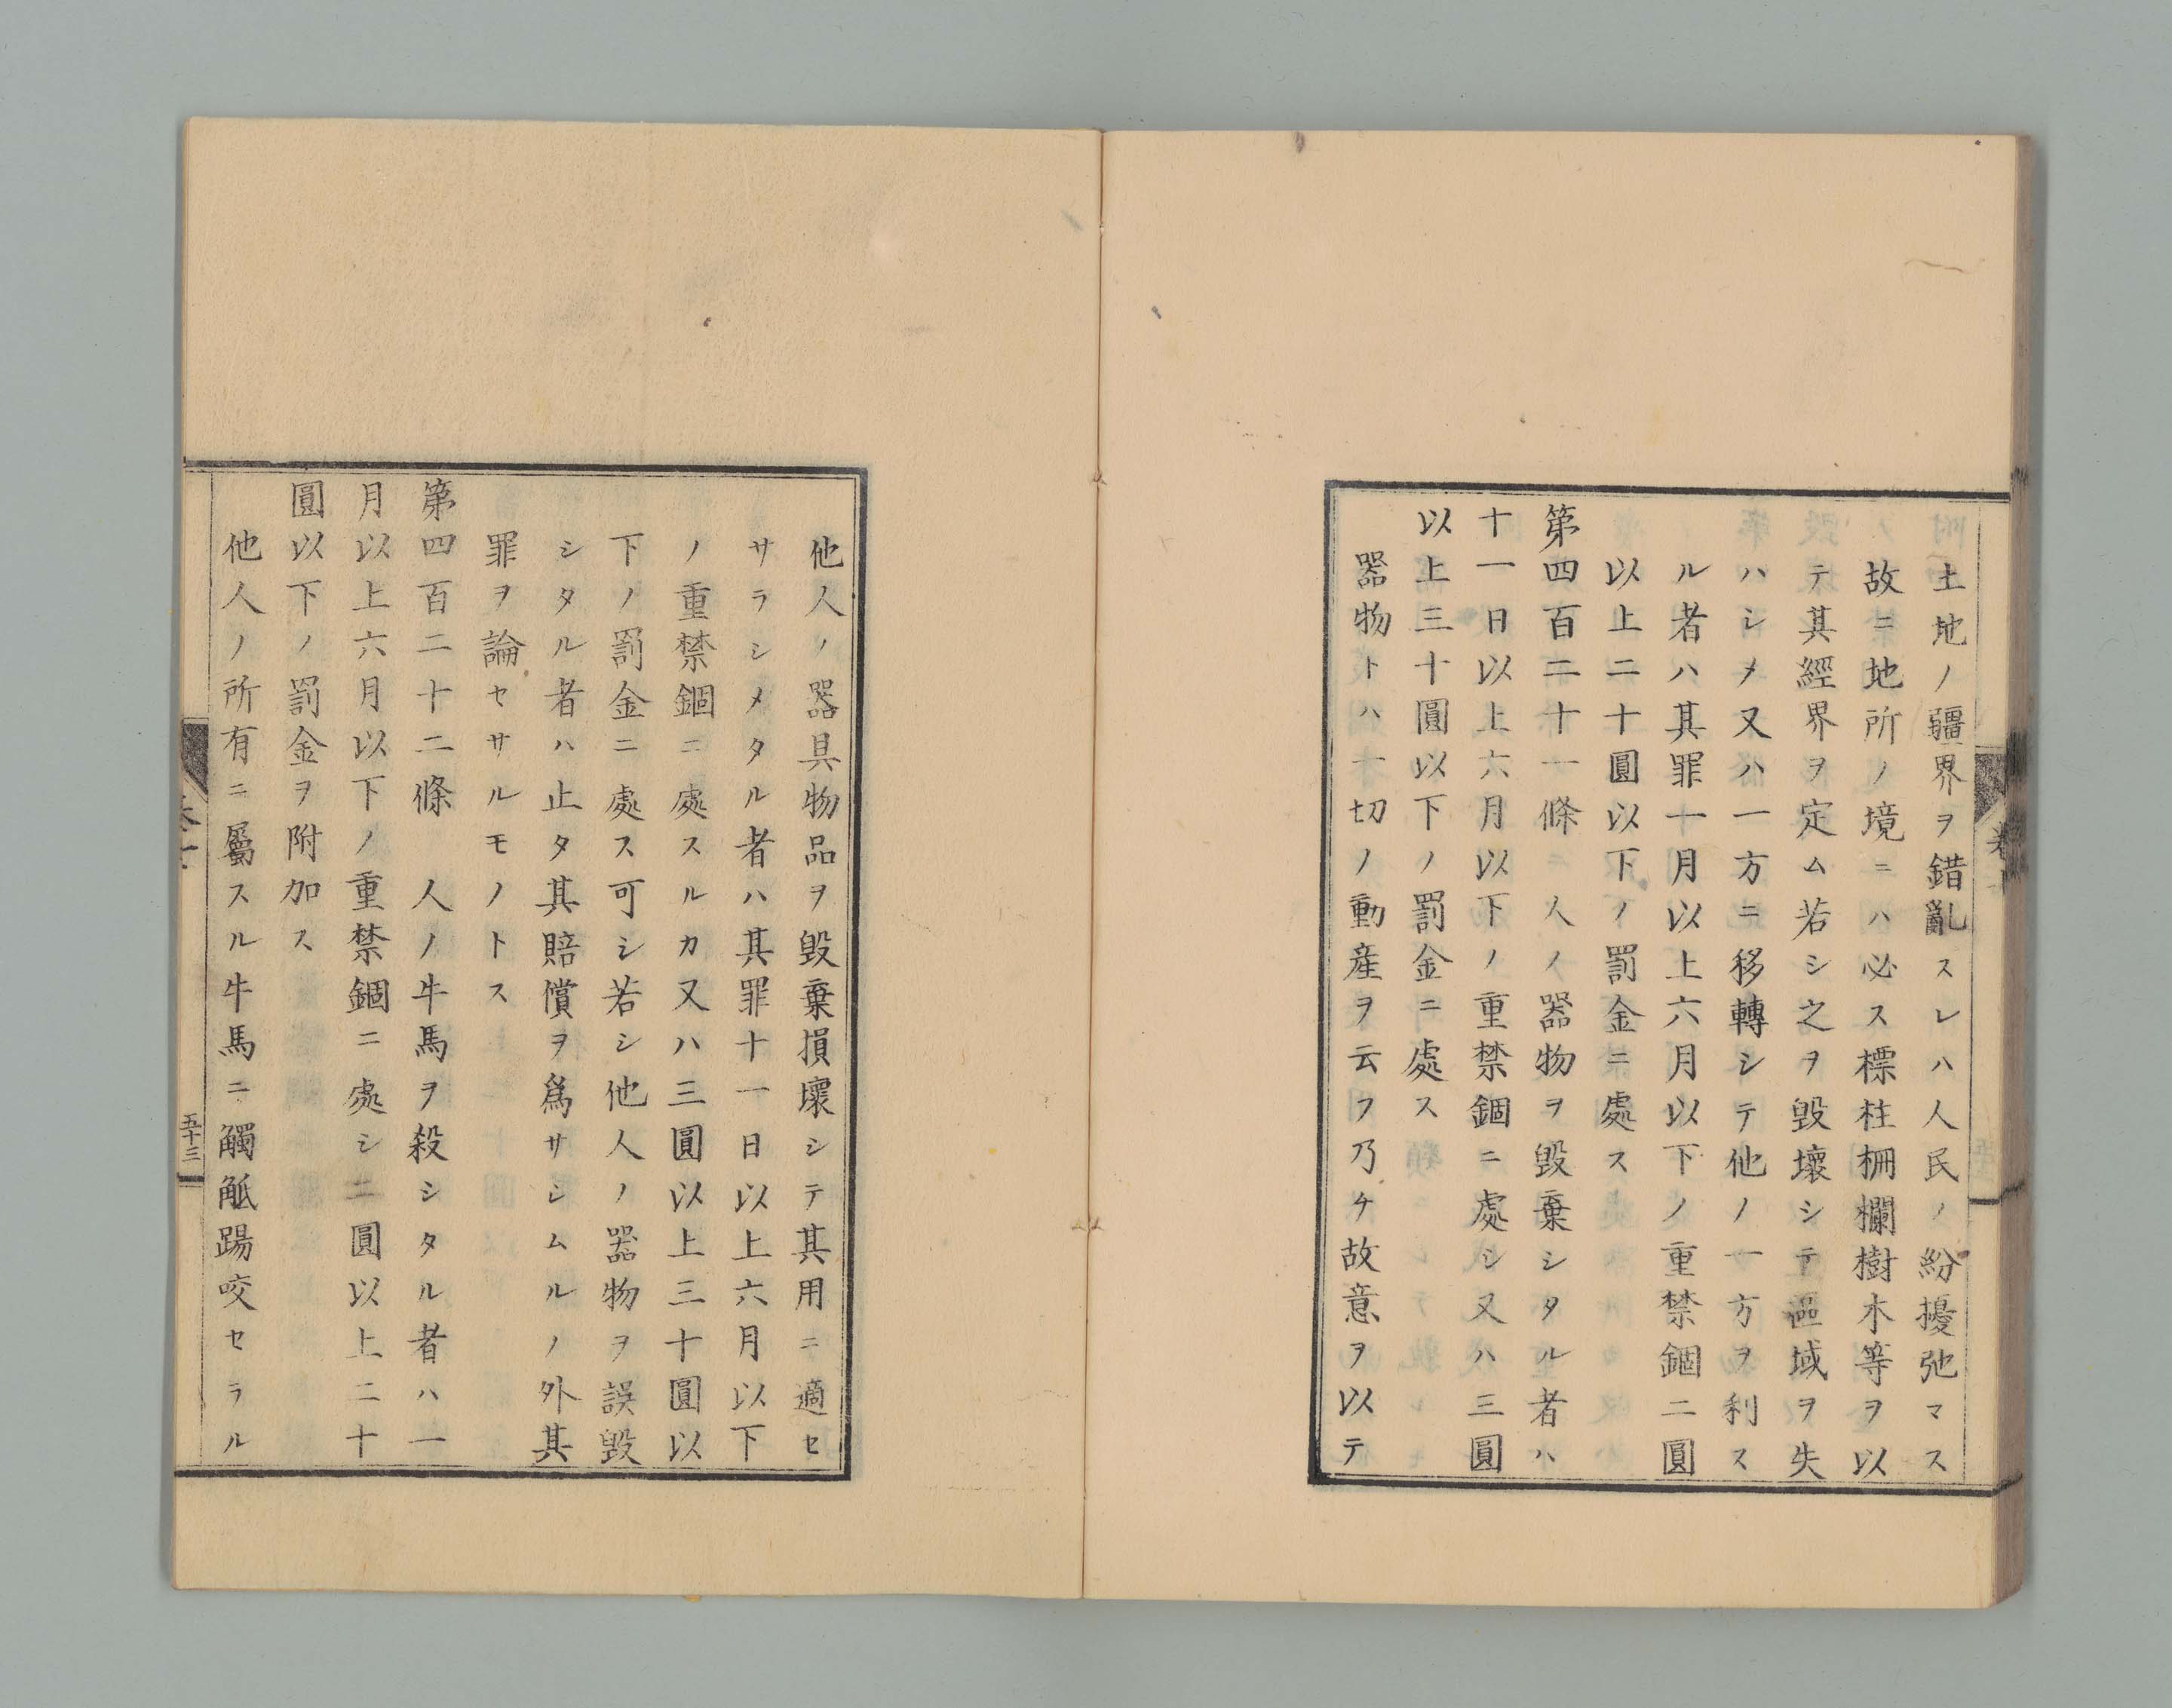 土地ノ疆界ヲ錯亂スレハ人民ノ紛擾弛マス
故ニ地所ノ境ニハ必ス標柱柵欄樹木等ヲ以
テ其經界ヲ定ム若シ之ヲ毀壞シテ區域ヲ失
ハシメ又ハ一方ニ移轉シテ他ノ一方ヲ利ス
ル者ハ其罪一月以上六月以下ノ重禁錮二圓
以上二十圓以下ノ罰金ニ處ス
第四百二十一條 人ノ器物ヲ毀棄シタル者ハ
十一日以上六月以下ノ重禁錮ニ處シ又ハ三圓
以上三十圓以下ノ罰金ニ處ス
器物トハ一切ノ動産ヲ云フ乃チ故意ヲ以テ
他人ノ器具物品ヲ毀棄損壞シテ其用ニ適セ
サラシメタル者ハ其罪十一日以上六月以下
ノ重禁錮ニ處スルカ又ハ三圓以上三十圓以
下ノ罰金ニ處ス可シ若シ他人ノ器物ヲ誤毀
シタル者ハ止タ其賠償ヲ爲サシムルノ外其
罪ヲ論セサルモノトス
第四百二十二條 人ノ牛馬ヲ殺シタル者ハ一
月以上六月以下ノ重禁錮ニ處シ二圓以上二十
圓以下ノ罰金ヲ附加ス
他人ノ所有ニ屬スル牛馬ニ觸觝踢咬セラル
五十三